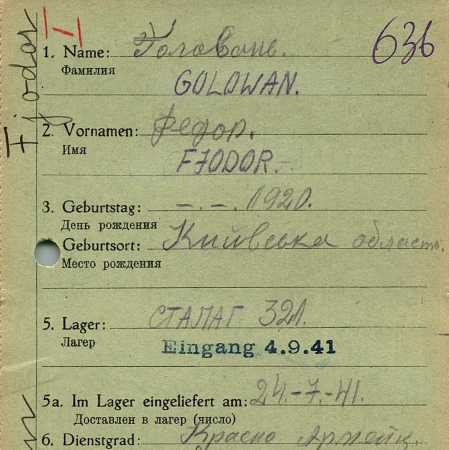 Fjodor
636
1. Name: Головань.
Фамилия
GOLOWAN.
2. Vornamen: Федор.
Имя
FJODOR.
3. Geburtstag: -.-. 1920.
День рождения
Geburtsort: Київська область.
Место рождения
5. Lager: СТАЛАГ 321.
Лагер
Eingang 4.9.41
5a. Im Lager eingeliefert am: 24.-7.-41.
Доставлен в лагер (число)
6. Dienstgrad: Красно Армейц.